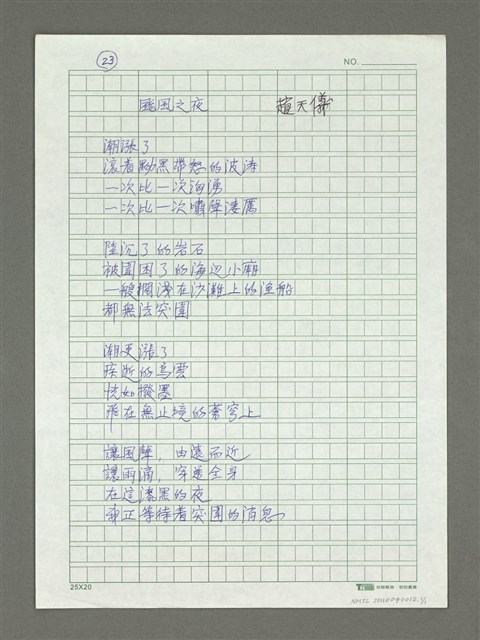 23
NO.
颱風之夜 趙天儀
潮漲了
滾著黝黑帶怒的波濤
一次比一次洶湧
一次比一次嘯聲淒厲
陸沉了的岩石
被圍困了的海邊小廟
一艘擱淺在沙灘上的漁船
都無法突圍
潮更漲了
疾逝的烏雲
恍如撥墨
飛在無止境的蒼穹上
讓風聲,由遠而近
讓雨滴,穿透全身
在這漆黑的夜
我正等待著突圍的消息
25X20